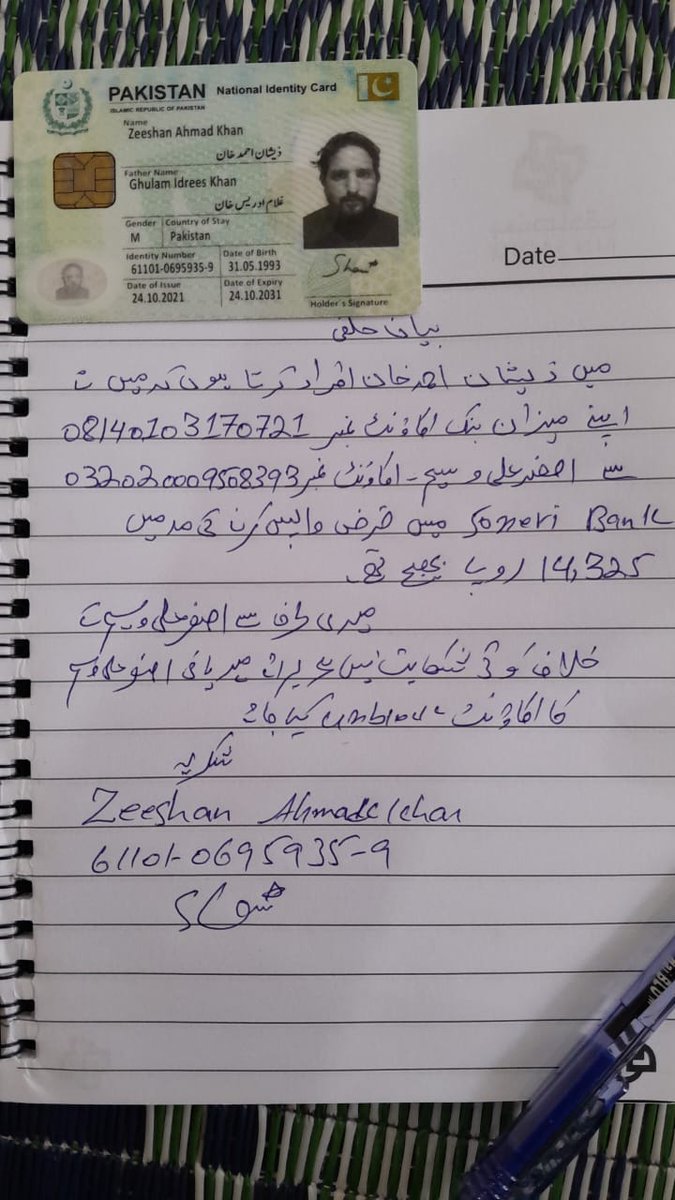 PAKISTAN National Identity Card
ISLAMIC REPUBLIC OF PAKISTAN
Name
Zeeshan Ahmad Khan
ذیشان احمد خان
Father Name
Ghulam Idrees Khan
غلام ادریس خان
Gender Country of Stay
M Pakistan
Identity Number Date of Birth
61101-0695935-9 31.05.1993
Date of Issue Date of Expiry
24.10.2021 24.10.2031
Holder's Signature
Date
بیان حلفی
میں ذیشان احمد خان اقرار کرتا ہوں کہ میں نے
اپنے میزان بنک اکاؤنٹ نمبر 08140103170721
سے اصغر علی وسیم - اکاؤنٹ نمبر 032020009508393
Soneri Bank میں قرض واپس کرنے کی مد میں
14,325 روپے بھیجے تھے
میری طرف سے اصغر علی وسیم کے
خلاف کوئی شکایت نہیں ہے برائے مہربانی اصغر علی وسیم
کا اکاؤنٹ کیا جائے
شکریہ
Zeeshan Ahmad Khan
61101-0695935-9